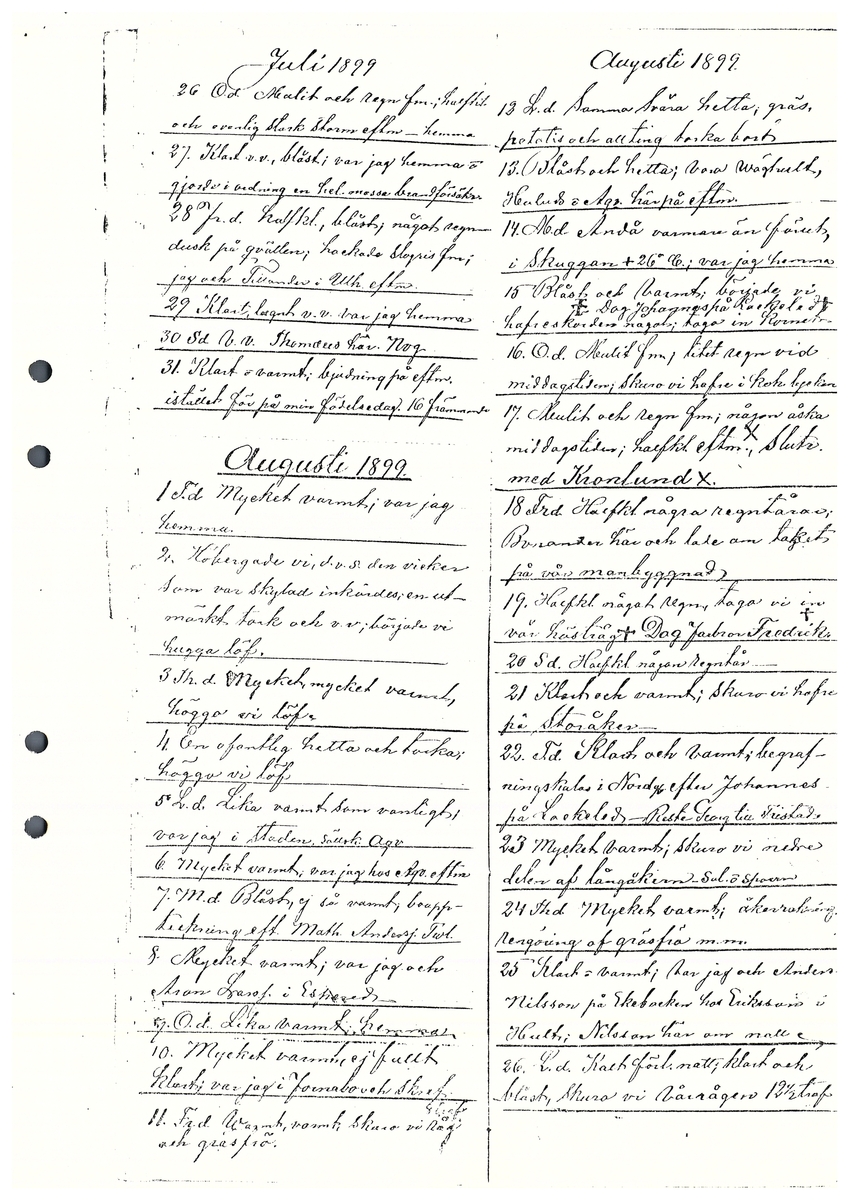 Juli 1899
26 Od Mulit och regn fm.; halfkl.
och ovanlig stark storm eftm - hemma
27. Klart v.v., blåst; var jag hemma o
gjorde i ordning en hel mossa brandförsäkr
28 Fr.d. halfkl., blåst; något regn
dusk på qvällen; hackade fm;
jag och Tillander i Ulh. eftm.
29 Klart, lugnt v.v. var jag hemma
30 Sd V.v. Thomæus här. Nvg
31. Klart o varmt; bjudning på eftm.
istället för på min födelsedag. 16 främmande
Augusti 1899.
1 T.d Mycket varmt; var jag
hemma.
2. Höbergade vi, d.v.s. den vicker
som var skylad inkördes; en ut-
märkt tork och v.v; började vi
hugga löf.
3 Th.d. Mycket, mycket varmt,
höggo vi löf.
4. En ofantlig hetta och torka;
höggo vi löf
5 L.d. Lika varmt som vanligt;
var jag i staden, Agv
6. Mycket varmt; var jag hos Agv. eftm
7. M.d Blåst, ej så varmt, boupp-
teckning eft. Math. Andersj.
8. Mycket varmt; var jag och
Aron i
9. O.d. Lika varmt, hemma
10. Mycket varmt, ej fullt
klart; var jag i Fornabo och skref.
11. Frd Warmt, varmt, skuro vi råg
och gräsfrö.
Augusti 1899.
12 L.d. Samma svåra hetta; gräs,
potatis och allting torka bort
13. Blåst och hetta; voro Wåghult,
o Agv. här på eftm.
14. Md Ändå varmare än förut,
i skuggan +26° C.; var jag hemma
15 Blåst och varmt; började vi
† Dog Johannes på Lockeled †
hafreskörden något; togo in kornet
16. O.d. Mulit fm, litet regn vid
middagstiden; skuro vi hafre i
17. Mulit och regn fm; någon åska
middagstiden; halfkl eftm., X Slutr.
med Kronlund X.
18 Frd Halfkl några regntårar;
här och lade om taket
på vår manbyggnad
19. Halfkl något regn, togo vi in
vår höstråg † Dog Jacbson Fredrik †
20 Sd. Halfkl någon regntår
21 Klart och varmt; skuro vi hafre
på Storåker
22. Td. Klart och varmt; begraf-
ningskalas i Nordg efter Johannes
på Lockeled - Reste Georg till
23 Mycket varmt; skuro vi nedre
delen af långåkern
24 Thd Mycket varmt; åkerrakning
rengöring af gräsfrö m.m.
25 Klart o varmt; var jag och Anders
Nilsson på Ekebacken hos Eriksson i
Hult; Nilsson här om natte
26. L.d. Kalt förl. natt; klart och
blåst, skuro vi Vårrågen 12½ traf